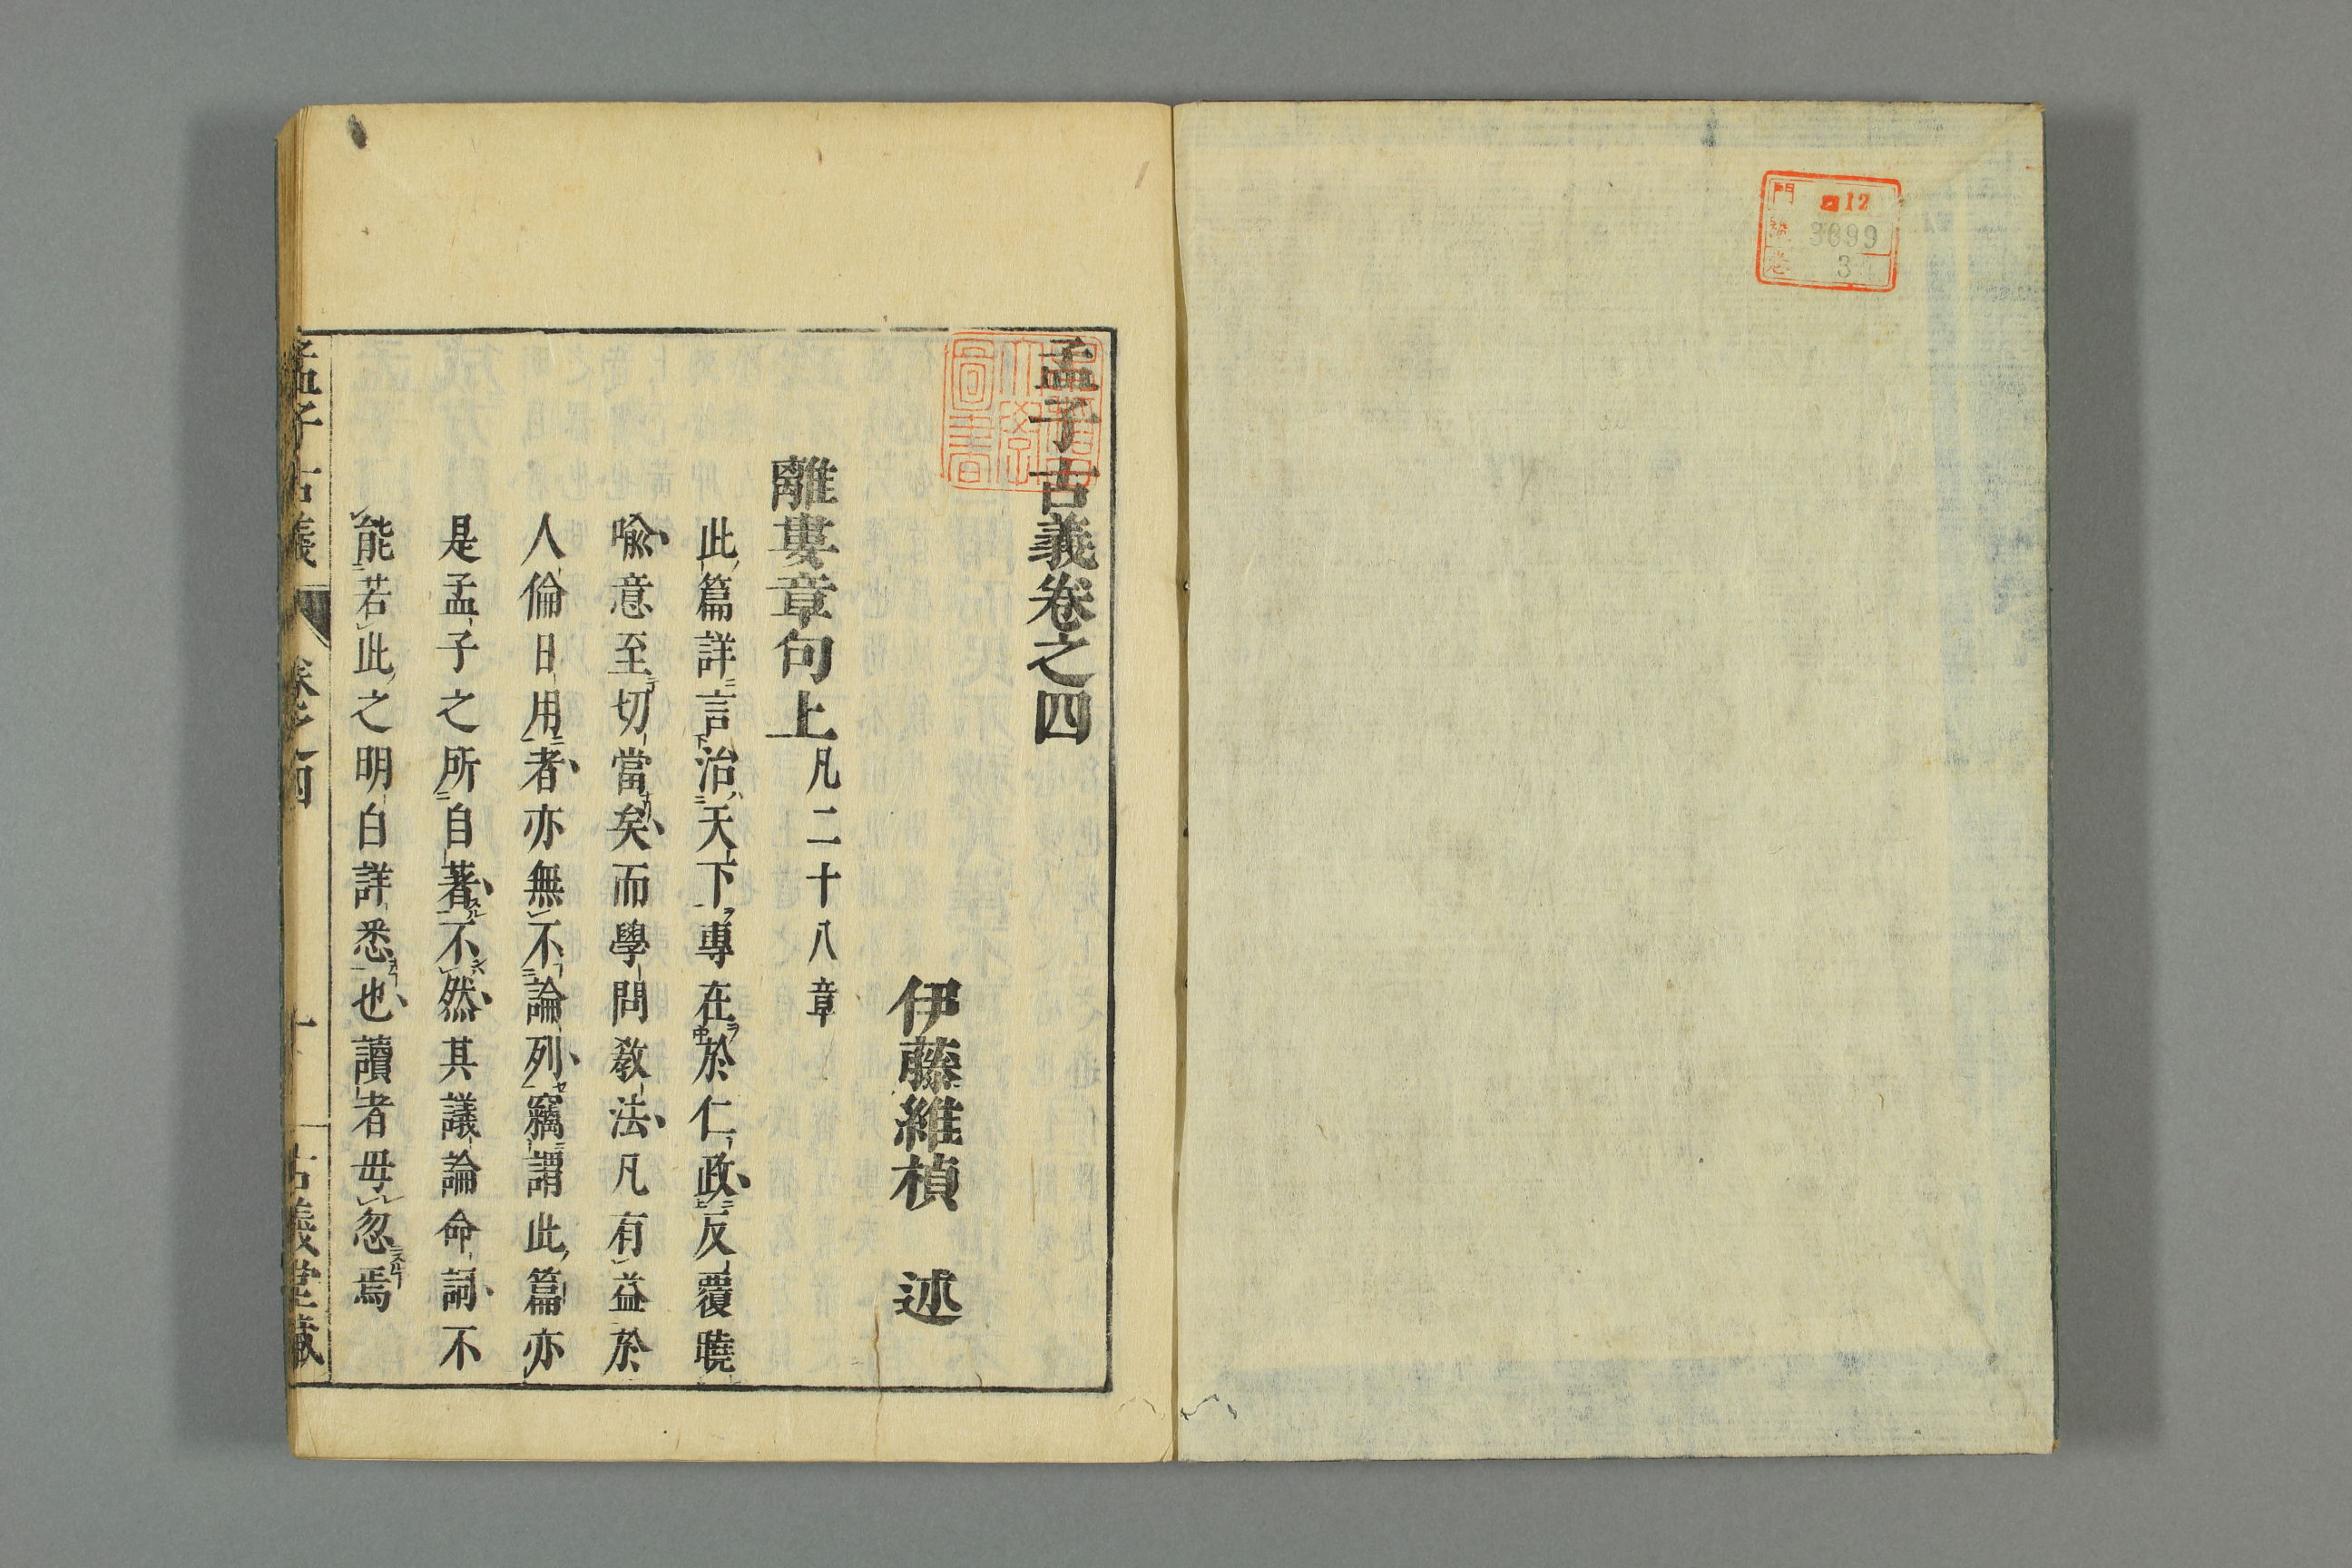 門 12
號 3699
卷 3
孟子古義卷之四
伊藤維楨 述
離婁章句上 凡二十八章
此篇詳言治天下專在於仁政反覆曉
喩意至切當矣而學問教法凡有益於
人倫日用者亦無不論列竊謂此篇亦
是孟子之所自著不然其議論命詞不
能若此之明白詳悉也讀者毋忽焉
孟子古義 卷之四 古義堂藏